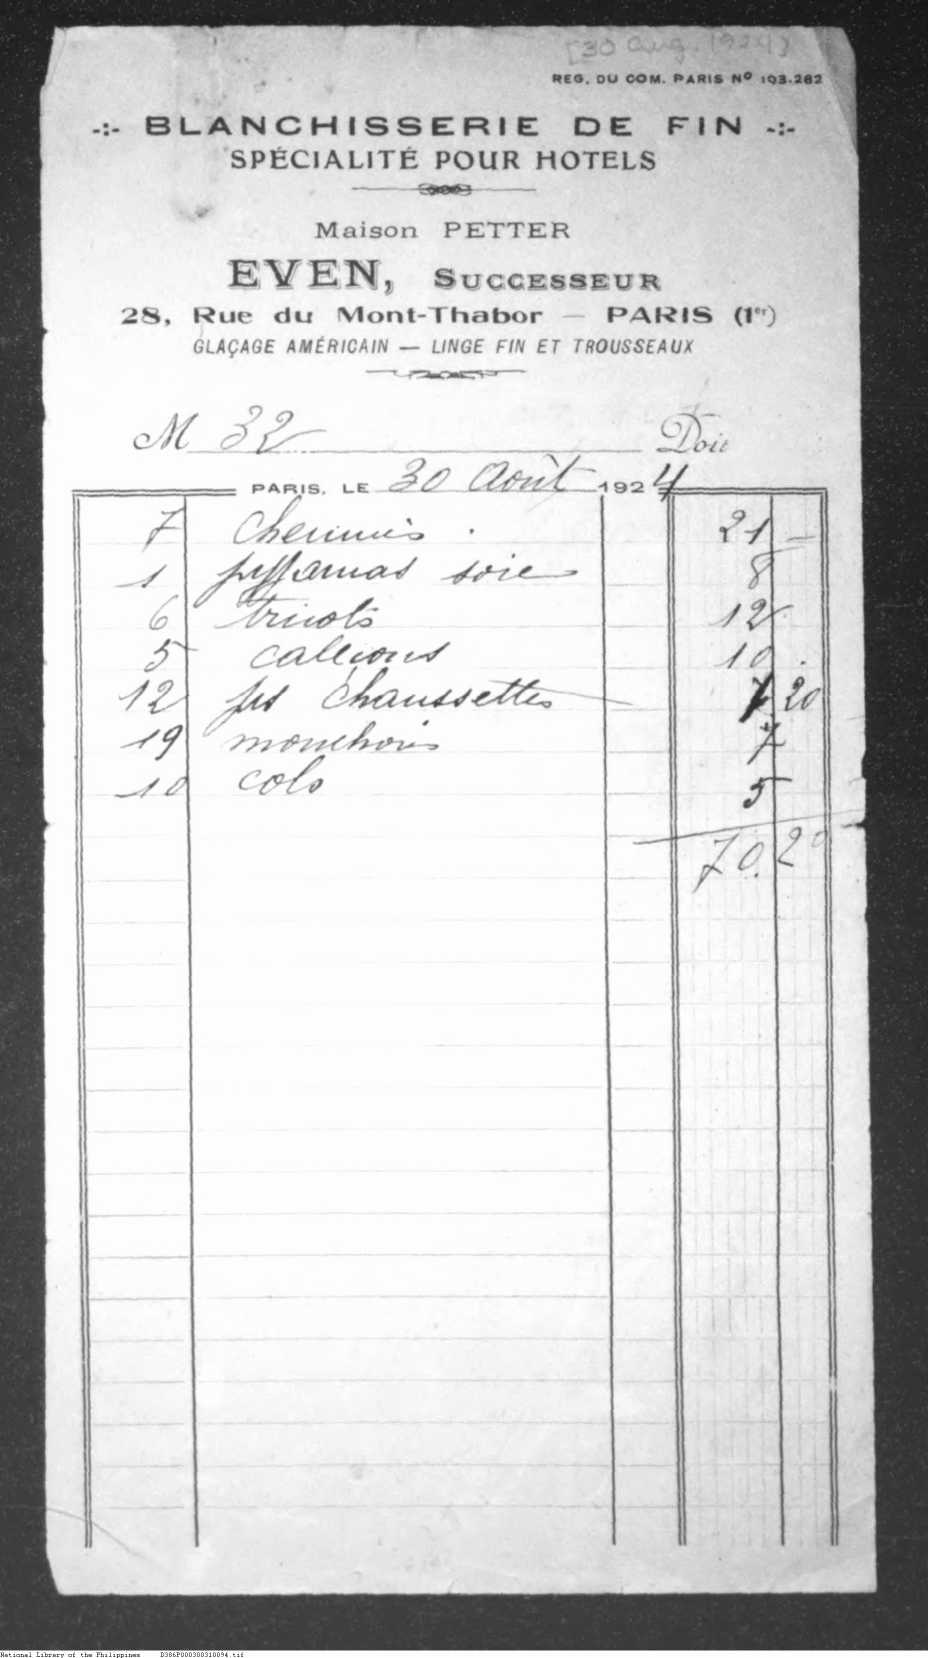 [30 Aug. 1924]
REG. DU COM. PARIS Nº 193.282
-:- BLANCHISSERIE DE FIN -:-
SPÉCIALITÉ POUR HOTELS
Maison PETTER
EVEN, SUCCESSEUR
28, Rue du Mont-Thabor — PARIS (1er)
GLAÇAGE AMÉRICAIN — LINGE FIN ET TROUSSEAUX
M 32 Doit
PARIS, LE 30 Août 1924
7 chemises 21 —
1 pyjamas soie 8
6 tricots 12
5 caleçons 10
12 prs chaussettes 7 20
19 mouchoirs 7
10 cols 5
70.20
National Library of the Philippines D386P000300310094.tif